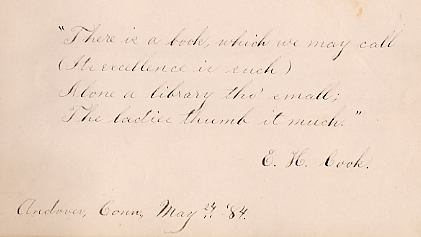 "There is a book, which we may call
(Its excellence is such)
Alone a library tho' small;
The ladies thumb it much."
E. H. Cook.
Andover, Conn, May 24 '84.